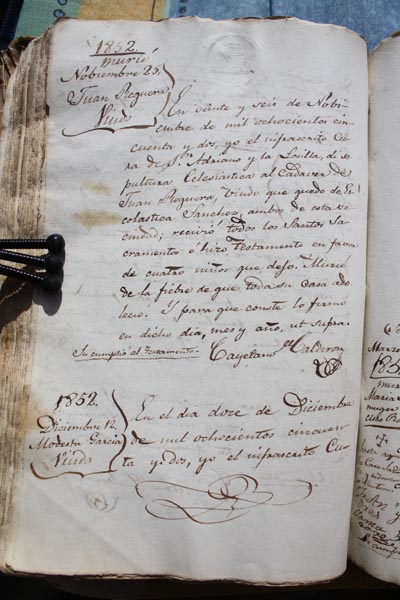 1852.
murió
Nobiembre 25.
Juan Reguera
Viudo
En veinte y seis de Nobi-
embre de mil ochocientos cin-
cuenta y dos, yo el infrascrito Cu-
ra de Sn. Adriano y la Losilla, di se-
pultura Eclesiástica al Cadaver de
Juan Reguera, Viudo que quedo de Es-
colastica Sanchez, ambos de esta ve-
cindad; recivió todos los Santos Sa-
cramentos e hizo testamento en favor
de cuatro niños que dejo. Murio
de la fiebre de que toda su casa ado-
lecio. Y para que conste lo firmo
en dicho dia, mes y año, ut supra.
Se cumplió el testamento.
Cayetano Calderon
1852.
Diciembre 12.
Modesta Garcia
Viuda
En el dia doce de Diciembre
de mil ochocientos cincuen-
ta y dos, yo el infrascrito Cu-
Marzo
185
Maria
muger